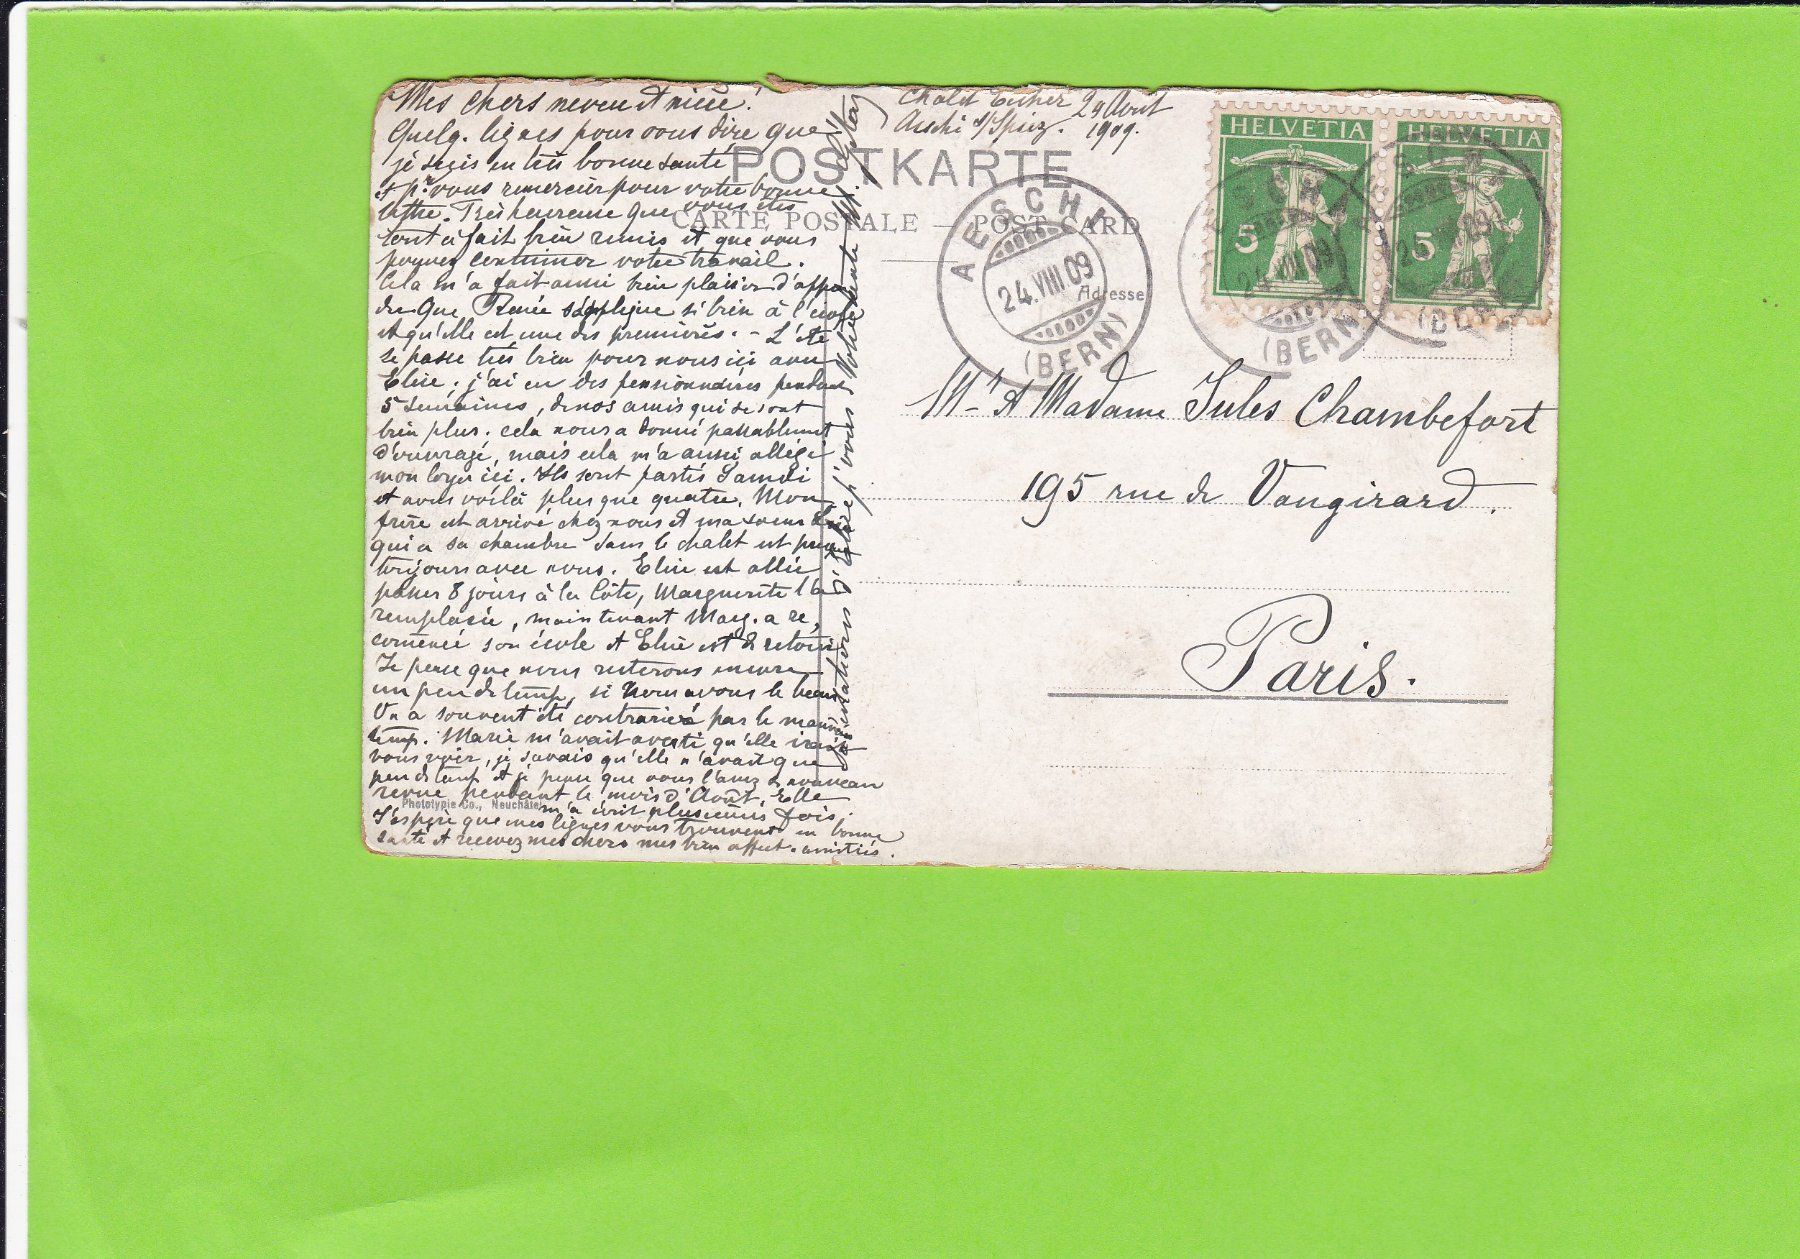 Mes chers neveu et nièce!
Quelq. lignes pour vous dire que
je suis en très bonne santé
et pr vous remercier pour votre bonne
lettre. Très heureuse que vous êtes
tout à fait bien remis et que vous
pouvez continuer votre travail.
Cela m'a fait aussi bien plaisir d'appren
dre que Renée s'applique si bien à l'école
et qu'elle est une des premières. - L'été
se passe très bien pour nous ici avec
Elise; j'ai eu des pensionnaires pendant
5 semaines, de nos amis qui se sont
bien plus. cela nous a donné passablement
d'ouvrage, mais cela m'a aussi allégé
mon loyer ici. Ils sont partis Samedi
et nous voilà plus que quatre. Mon
frère est arrivé chez nous et ma soeur
qui a sa chambre dans le chalet est presque
toujours avec nous. Elise est allée
passer 8 jours à la Côte, Marguerite l'a
remplacée, maintenant Marg. a re,
comencé son école et Elise est de retour
Je pense que nous resterons encore
un peu de temps, si nous avons le beau
On a souvent été contrarié par le mauvais
temps. Marie m'avait averti qu'elle irait
vous voir, je savais qu'elle n'avait que
peu de temps et je pense que vous l'avez de nouveau
revue pendant le mois d'Août. Elle
m'a écrit plusieurs fois.
J'espère que mes lignes vous trouvent en bonne
santé et recevez mes chers mes bien affect. amitiés.
Phototypie Co., Neuchâtel
Salutations d'Elise, j'vous
Chalet Escher 24 Août
Aeschi s/Spiez. 1909.
POSTKARTE
CARTE POSTALE — POST CARD
AESCHI
24.VIII.09
(BERN)
Adresse
HELVETIA
5
HELVETIA
5
AESCHI
24.VIII.09
(BERN)
AESCHI
24.VIII.09
(BERN)
Mr et Madame Jules Chambefort
195 rue de Vaugirard.
Paris.